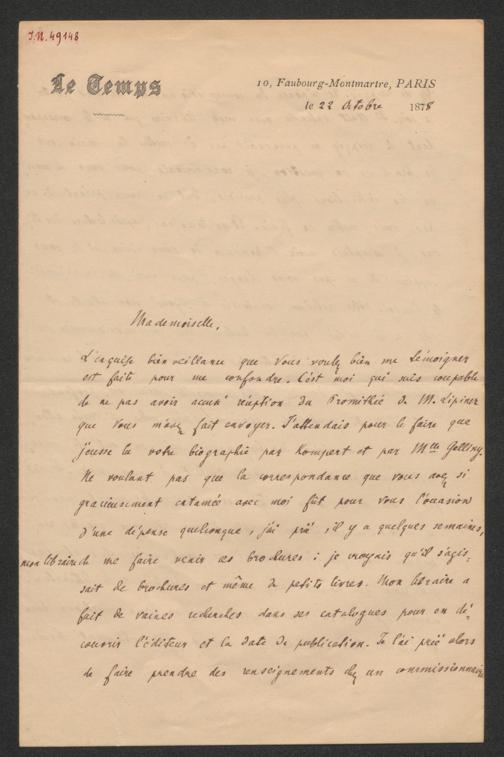 J.N. 49148
Le Temps
10, Faubourg-Montmartre, PARIS
le 22 Octobre 1878
Mademoiselle,
L'exquise bienveillance que vous voulez bien me témoigner
est faite pour me confondre. C'est moi qui suis coupable
de ne pas avoir accusé réception du Prométhée de M. Lipiner
que vous m'avez fait envoyer. J'attendais pour le faire que
j'eusse lu votre biographie par Kompert et par Mlle
Ne voulant pas que la correspondance que vous avez si
gracieusement entamée avec moi fût pour vous l'occasion
d'une dépense quelconque, j'ai prié il y a quelques semaines,
mon libraire de me faire venir ces brochures : je croyais qu'il s'agis-
sait de brochures et même de petits livres. Mon libraire a
fait de vaines recherches dans ses catalogues pour en dé-
couvrir l'éditeur et la date de publication. Je l'ai prié alors
de faire prendre des renseignements chez un commissionnaire